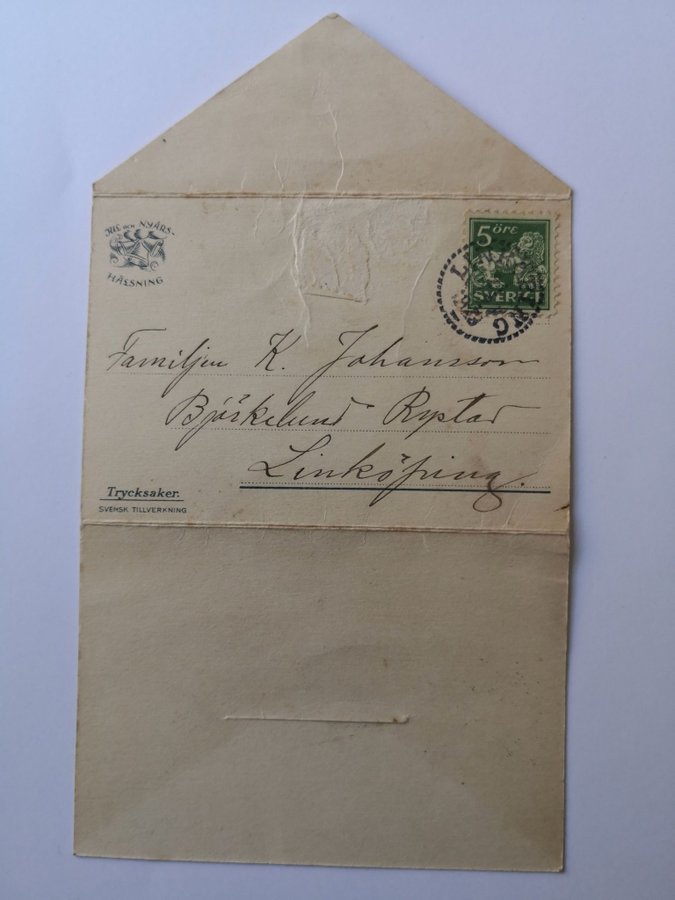 JUL OCH NYÅRS-
HÄLSNING
5 ÖRE
SVERIGE
Familjen K. Johansson
Björkelund Rystad
Linköping.
Trycksaker.
SVENSK TILLVERKNING